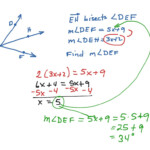 D
H
F
E
→EH bisects ∠DEF
m∠DEF = 5x+9
m∠DEH = 3x+2
Find m∠DEF
2(3x+2) = 5x+9
6x+4 = 5x+9
-5x -4 -5x -4
x = 5
m∠DEF = 5x+9 = 5·5+9
= 25+9
= 34°